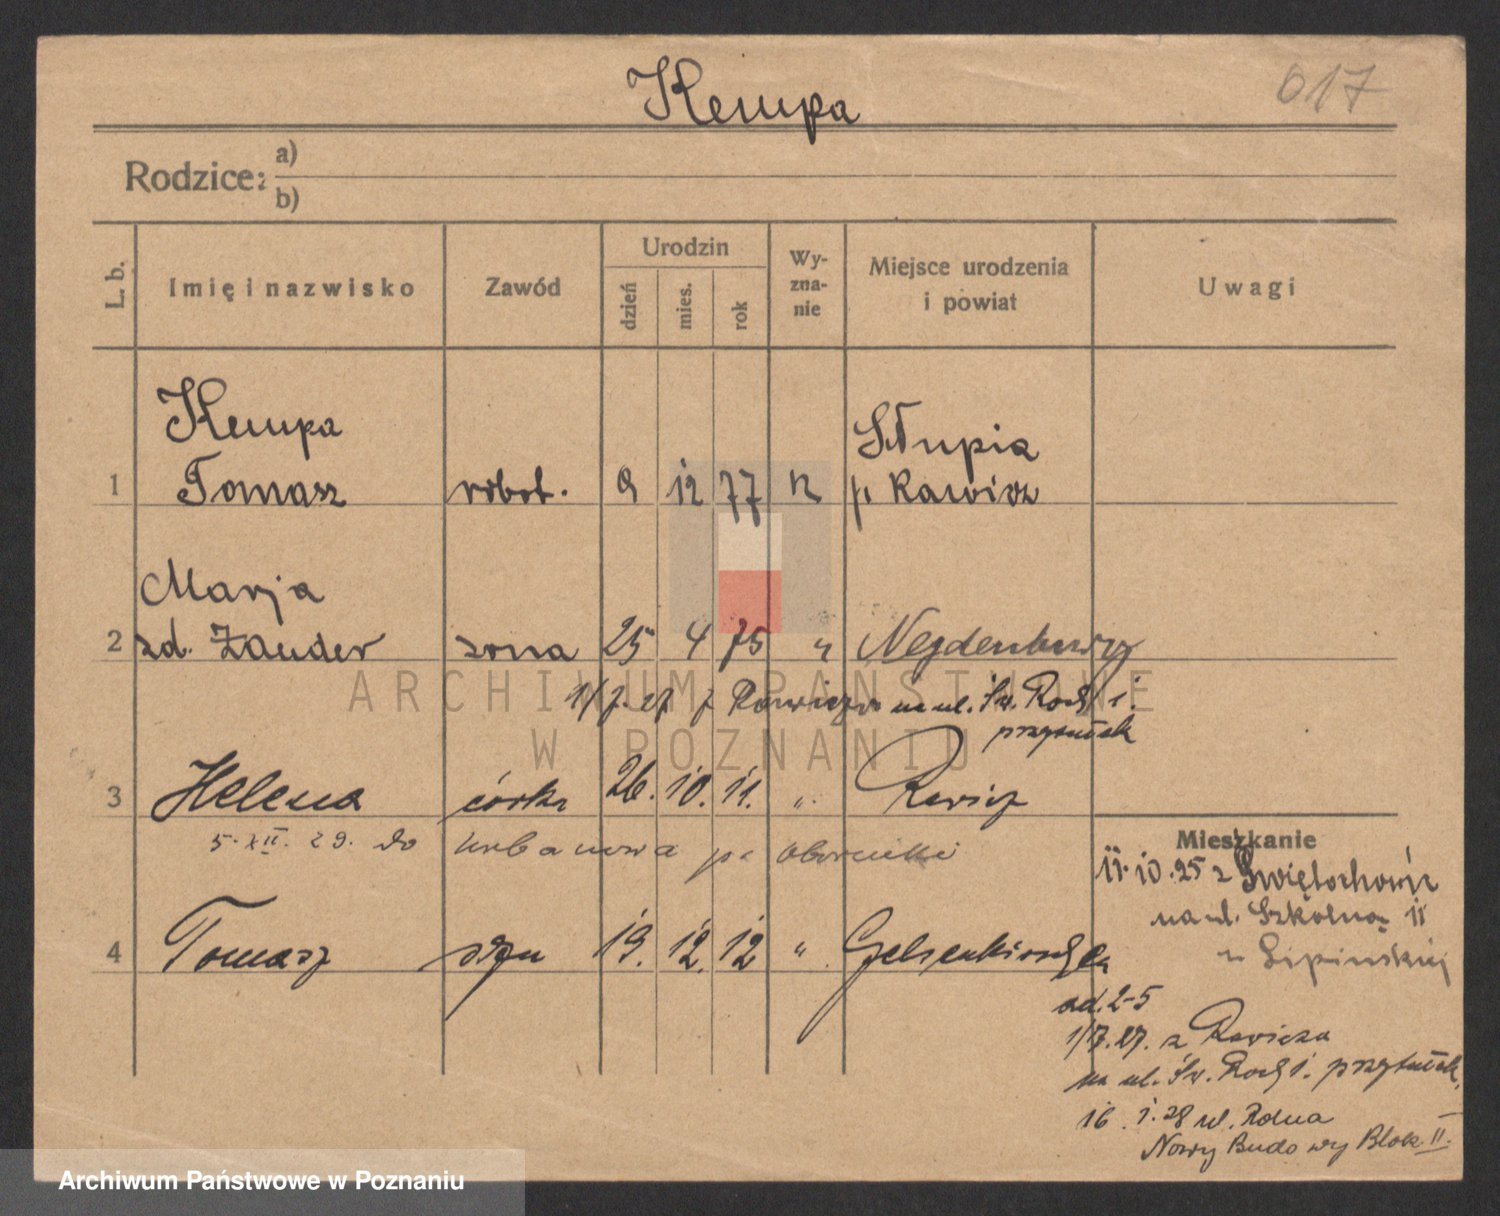 Kempa
617
Rodzice:
a)
b)
L. b.
Imię i nazwisko
Zawód
Urodzin
dzień
mies.
rok
Wy-
zna-
nie
Miejsce urodzenia
i powiat
Uwagi
Kempa Słupia
1 Tomasz robot. 9 12 77 p. Rawicz
Marja
2 zd. Zander żona 25 4 75 "
1/7.27 z Rawicza na ul. Św. Roch 1.
przytułek
3 Helena córka 26. 10. 11. " Rawicz
5. XII. 29. do Urbanowa p. Oborniki
Mieszkanie
11.10.25 z Świętochowic
na ul. Szkolną 11
u Lipińskiej
4 Tomasz syn 19. 12. 12 " Gelsenkirchen
od. 2-5
1/7.27. z Rawicza
na ul. Św. Roch 1. przytułek
16. 1. 28 ul. Rolna
Nowy Budowy Blok II.
ARCHIWUM PAŃSTWOWE
W POZNANIU
Archiwum Państwowe w Poznaniu